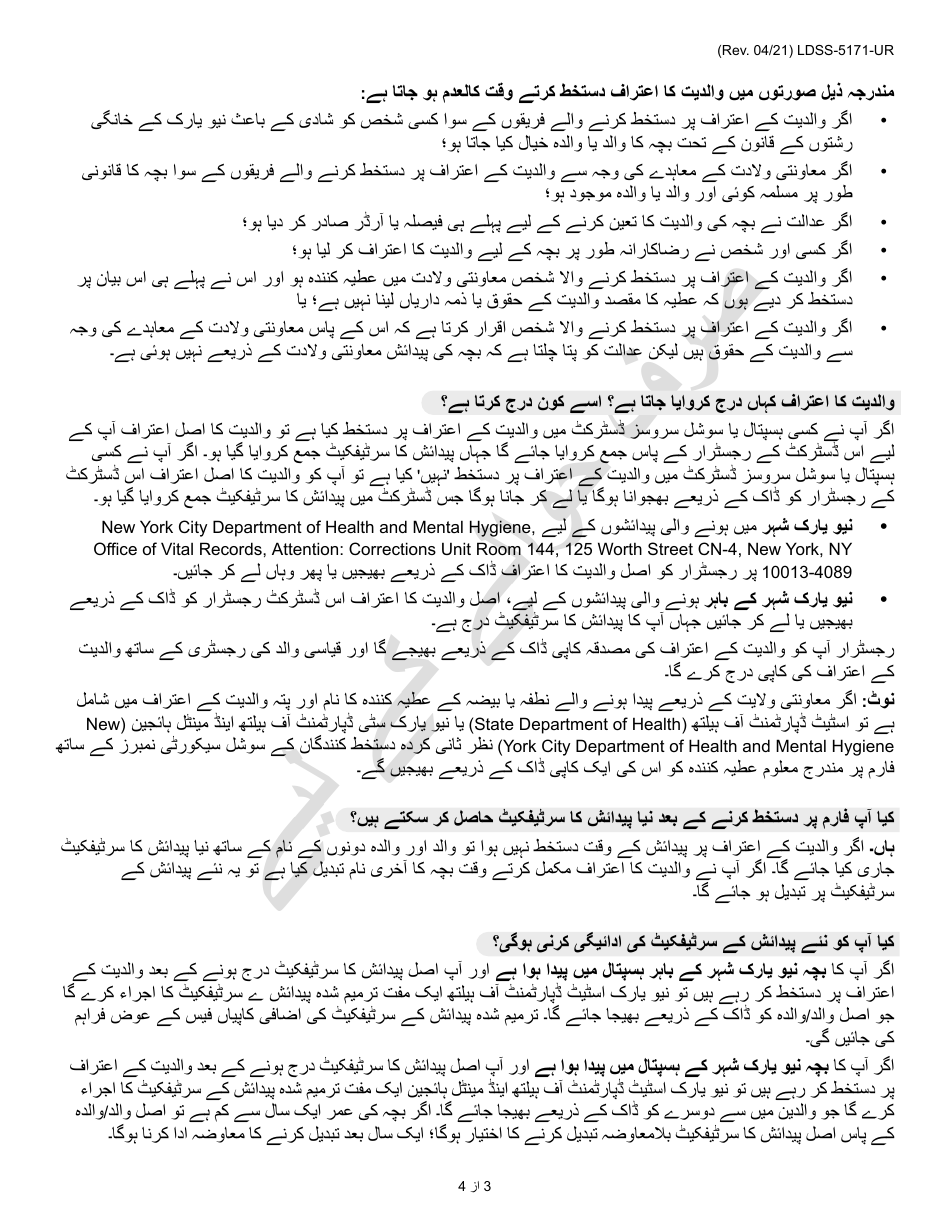 (Rev. 04/21) LDSS-5171-UR
مندرجہ ذیل صورتوں میں والدیت کا اعتراف دستخط کرتے وقت کالعدم ہو جاتا ہے:
• اگر والدیت کے اعتراف پر دستخط کرنے والے فریقوں کے سوا کسی شخص کو شادی کے باعث نیو یارک کے خانگی
رشتوں کے قانون کے تحت بچہ کا والد یا والدہ خیال کیا جاتا ہو؛
• اگر معاونتی ولادت کے معاہدے کی وجہ سے والدیت کے اعتراف پر دستخط کرنے والے فریقوں کے سوا بچہ کا قانونی
طور پر مسلمہ کوئی اور والد یا والدہ موجود ہو؛
• اگر عدالت نے بچہ کی والدیت کا تعین کرنے کے لیے پہلے ہی فیصلہ یا آرڈر صادر کر دیا ہو؛
• اگر کسی اور شخص نے رضاکارانہ طور پر بچہ کے لیے والدیت کا اعتراف کر لیا ہو؛
• اگر والدیت کے اعتراف پر دستخط کرنے والا شخص معاونتی ولادت میں عطیہ کنندہ ہو اور اس نے پہلے ہی اس بیان پر
دستخط کر دیے ہوں کہ عطیہ کا مقصد والدیت کے حقوق یا ذمہ داریاں لینا نہیں ہے؛ یا
• اگر والدیت کے اعتراف پر دستخط کرنے والا شخص اقرار کرتا ہے کہ اس کے پاس معاونتی ولادت کے معاہدے کی وجہ
سے والدیت کے حقوق ہیں لیکن عدالت کو پتا چلتا ہے کہ بچہ کی پیدائش معاونتی ولادت کے ذریعے نہیں ہوئی ہے۔
والدیت کا اعتراف کہاں درج کروایا جاتا ہے؟ اسے کون درج کرتا ہے؟
اگر آپ نے کسی ہسپتال یا سوشل سروسز ڈسٹرکٹ میں والدیت کے اعتراف پر دستخط کیا ہے تو والدیت کا اصل اعتراف آپ کے
لیے اس ڈسٹرکٹ کے رجسٹرار کے پاس جمع کروایا جائے گا جہاں پیدائش کا سرٹیفکیٹ جمع کروایا گیا ہو۔ اگر آپ نے کسی
ہسپتال یا سوشل سروسز ڈسٹرکٹ میں والدیت کے اعتراف پر دستخط 'نہیں' کیا ہے تو آپ کو والدیت کا اصل اعتراف اس ڈسٹرکٹ
کے رجسٹرار کو ڈاک کے ذریعے بھجوانا ہوگا یا لے کر جانا ہوگا جس ڈسٹرکٹ میں پیدائش کا سرٹیفکیٹ جمع کروایا گیا ہو۔
• نیو یارک شہر میں ہونے والی پیدائشوں کے لیے New York City Department of Health and Mental Hygiene,
Office of Vital Records, Attention: Corrections Unit Room 144, 125 Worth Street CN-4, New York, NY
10013-4089 پر رجسٹرار کو اصل والدیت کا اعتراف ڈاک کے ذریعے بھیجیں یا پھر وہاں لے کر جائیں۔
• نیو یارک شہر کے باہر ہونے والی پیدائشوں کے لیے، اصل والدیت کا اعتراف اس ڈسٹرکٹ رجسٹرار کو ڈاک کے ذریعے
بھیجیں یا لے کر جائیں جہاں آپ کا پیدائش کا سرٹیفکیٹ درج ہے۔
رجسٹرار آپ کو والدیت کے اعتراف کی مصدقہ کاپی ڈاک کے ذریعے بھیجے گا اور قیاسی والد کی رجسٹری کے ساتھ والدیت
کے اعتراف کی کاپی درج کرے گا۔
نوٹ: اگر معاونتی ولایت کے ذریعے پیدا ہونے والے نطفہ یا بیضہ کے عطیہ کنندہ کا نام اور پتہ والدیت کے اعتراف میں شامل
ہے تو اسٹیٹ ڈپارٹمنٹ آف ہیلتھ (State Department of Health) یا نیو یارک سٹی ڈپارٹمنٹ آف ہیلتھ اینڈ مینٹل ہائجین (New
York City Department of Health and Mental Hygiene) نظر ثانی کردہ دستخط کنندگان کے سوشل سیکورٹی نمبرز کے ساتھ
فارم پر مندرج معلوم عطیہ کنندہ کو اس کی ایک کاپی ڈاک کے ذریعے بھیجیں گے۔
کیا آپ فارم پر دستخط کرنے کے بعد نیا پیدائش کا سرٹیفکیٹ حاصل کر سکتے ہیں؟
ہاں۔ اگر والدیت کے اعتراف پر پیدائش کے وقت دستخط نہیں ہوا تو والد اور والدہ دونوں کے نام کے ساتھ نیا پیدائش کا سرٹیفکیٹ
جاری کیا جائے گا۔ اگر آپ نے والدیت کا اعتراف مکمل کرتے وقت بچہ کا آخری نام تبدیل کیا ہے تو یہ نئے پیدائش کے
سرٹیفکیٹ پر تبدیل ہو جائے گا۔
کیا آپ کو نئے پیدائش کے سرٹیفکیٹ کی ادائیگی کرنی ہوگی؟
اگر آپ کا بچہ نیو یارک شہر کے باہر ہسپتال میں پیدا ہوا ہے اور آپ اصل پیدائش کا سرٹیفکیٹ درج ہونے کے بعد والدیت کے
اعتراف پر دستخط کر رہے ہیں تو نیو یارک اسٹیٹ ڈپارٹمنٹ آف ہیلتھ ایک مفت ترمیم شدہ پیدائش ے سرٹیفکیٹ کا اجراء کرے گا
جو اصل والد/والدہ کو ڈاک کے ذریعے بھیجا جائے گا۔ ترمیم شدہ پیدائش کے سرٹیفکیٹ کی اضافی کاپیاں فیس کے عوض فراہم
کی جائیں گی۔
اگر آپ کا بچہ نیو یارک شہر کے ہسپتال میں پیدا ہوا ہے اور آپ اصل پیدائش کا سرٹیفکیٹ درج ہونے کے بعد والدیت کے اعتراف
پر دستخط کر رہے ہیں تو نیو یارک اسٹیٹ ڈپارٹمنٹ آف ہیلتھ اینڈ مینٹل ہائجین ایک مفت ترمیم شدہ پیدائش کے سرٹیفکیٹ کا اجراء
کرے گا جو والدین میں سے دوسرے کو ڈاک کے ذریعے بھیجا جائے گا۔ اگر بچہ کی عمر ایک سال سے کم ہے تو اصل والد/والدہ
کے پاس اصل پیدائش کا سرٹیفکیٹ بلامعاوضہ تبدیل کرنے کا اختیار ہوگا؛ ایک سال بعد تبدیل کرنے کا معاوضہ ادا کرنا ہوگا۔
3 از 4
صرف حوالے کے لیے